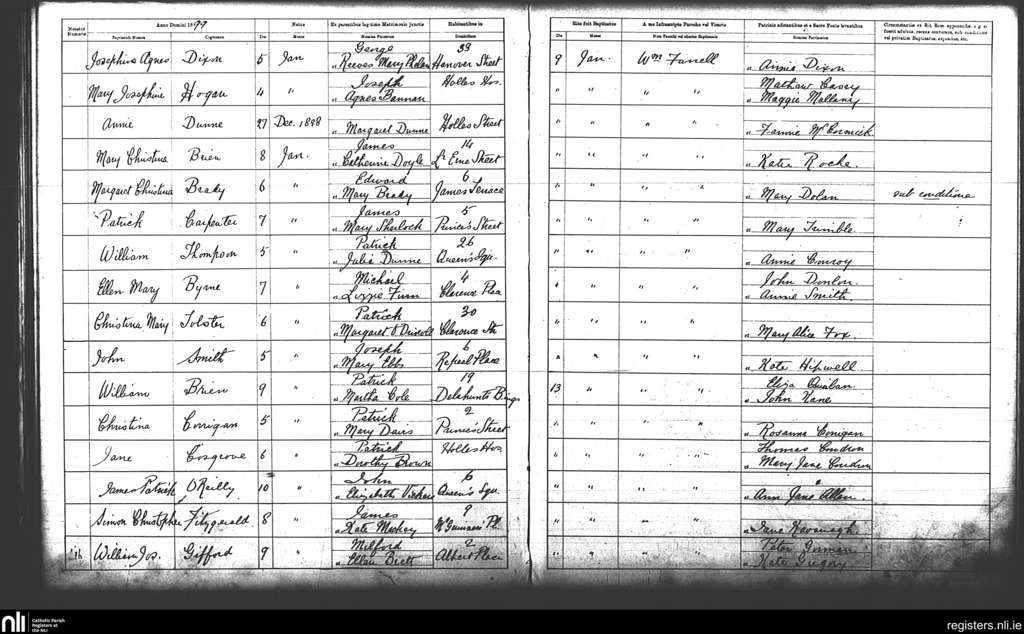 Numerus Anno Domini 1899 Natus Ex parentibus legitimo Matrimonio junctis Habitantibus in Rite fuit Baptizatus A me Infrascripto Parocho vel Vicario Patrinis adstantibus et e Sacro Fonte levantibus
Cognomen Die Mense Nomina Parentum Die Mense Nomina Patrinorum
George 39
Josephine Agnes Dixon 5 Jan " Reeves Mary Hanover Street 9 Jan. Wm Farrell " Annie Dixon
Joseph Holles Hos. Mathew Casey
Mary Josephine Hogan 4 " " Agnes Bannan " " " " " Maggie Mallany
Annie Dunne 27 Dec. 1898 " Margaret Dunne Holles Street " " " " " Fannie McCormick
James 14
Mary Christina Brien 8 Jan. " Catherine Doyle Lr Erne Street " " " " " Katie Roche.
Edward 6
Margaret Christina Brady 6 " " Mary Brady James Terrace " " " " " Mary Dolan sub conditione
James 5
Patrick Carpenter 7 " " Mary Sherlock Prince's Street " " " " " Mary Trimble.
Patrick 26
William Thompson 5 " " Julia Dunne Queen's Squ. " " " " " Annie Conroy
Michael 4 John Donlon.
Ellen Mary Byrne 7 " " Lizzie Clarence Place " " " " " Annie Smith.
Patrick 30
Christina Mary Tolster 6 " " Margaret O'Driscoll Clarence St. " " " " " Mary Alice Fox.
Joseph 6
John Smith 5 " " Mary Ebbs Repeal Place " " " " " Kate Hipwell
Patrick 19 Eliza
William Brien 9 " " Martha Cole Delahunts Bings 13 " " " " John Kane
Patrick 2
Christina Corrigan 5 " " Mary Davis Prince's Street " " " " " Rosanna Corrigan
Patrick Holles Hos. Thomas Condron
Jane Cosgrove 6 " " Dorothy Brown " " " " " Mary Jane Condron
John 6
James Patrick O'Reilly 10 " " Elizabeth Queen's Squ " " " " " Ann Jane Allen.
James 9
Simon Christopher Fitzgerald 8 " " Kate Mackey Pl. " " " " " Jane Kavanagh.
Milford 2 Peter Gorman
16 William Jos. Gifford 9 " " Ellen Albert Place " " " " " Kate Gregory
nli Catholic Parish Registers at the NLI registers.nli.ie